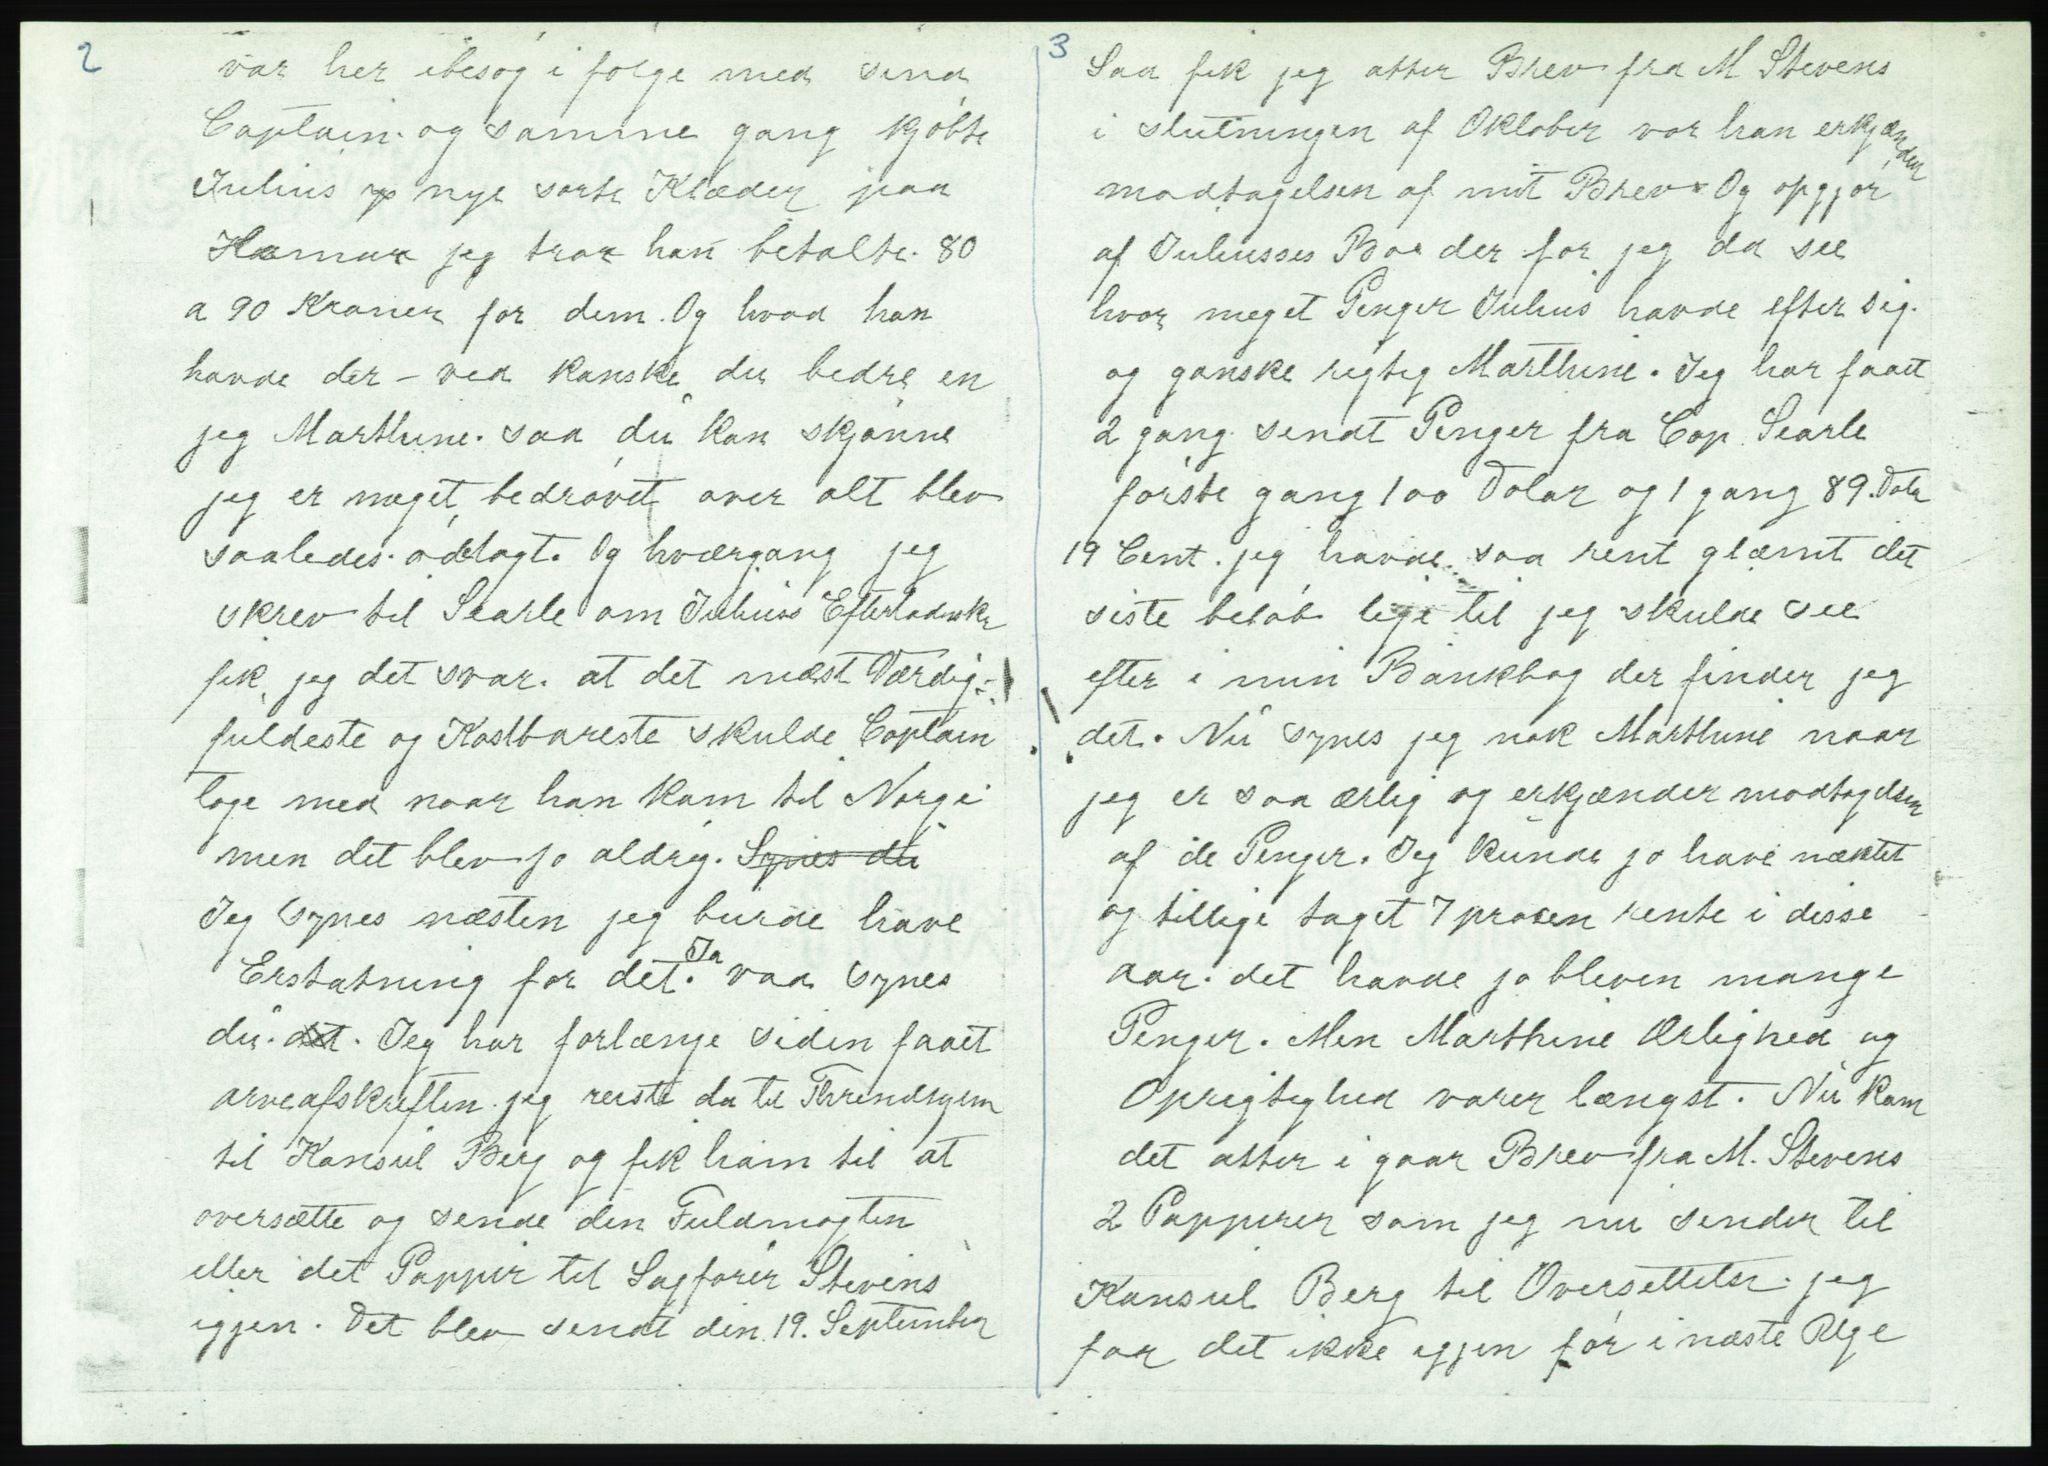 2
var her ibesøg i følge med sind
Captain. og samme gang kjøbte
Julius nye sorte Klæder paa
Hamar jeg tror han betalte. 80
a 90 Kroner for dem. Og hvad han
havde der – ved kanske du bedre en
jeg Marthine. saa du kan skjønne
jeg er meget bedrøvet over alt blev
saaledes. ødelagt. Og hværgang jeg
skrev til Searle om Julius Efterladnske
fik jeg det svar. at det mæst Værdig-
fuldeste og Kostbareste skulde Captain
tage med naar han kom til Norge
men det blev jo aldrig. Synes du
Jeg synes næsten jeg burde have
Erstatning for det. Ja vad synes
du. det. Jeg har forlænge siden faaet
arveafskriften. jeg reiste da til Throndhjem
til Konsul Berg og fik ham til at
oversætte og sende den Fuldmagten
eller det Pappir til Sagfører Stevens
igjen. Det blev sendt den 19. September
3
Saa fik jeg atter Brev fra M Stevens
i slutningen af Oktober vor han erkjænder
modtagelsen af mit Brev. Og opgjør
af Juliusses Boe der for jeg da see
hvor meget Penger Julius havde efter sig.
og ganske rigtig Marthine. Jeg har faaet
2 gang sendt Penger fra Cap. Searle
første gang 100 Dolar og 1 gang 89. Dola
19 Cent. jeg havde saa rent glæmt det
siste beløb lige til jeg skulde see
efter i min Bankbog der finder jeg
det. Nu synes jeg nok Marthine naar
jeg er saa ærlig og erkjænder modtagelsen
af de Penger. Jeg kunde jo have næktet
og tillige taget 7 prosen rente i disse
aar. det havde jo bleven mange
Penger. Men Marthine Ærlighed og
Oprigtighed varer længst. Nu kom
det atter i gaar Brev fra M. Stevens
2 Pappirer som jeg nu sender til
Konsul Berg til Oversettelse. jeg
faar det ikke igjen før i næste Uge